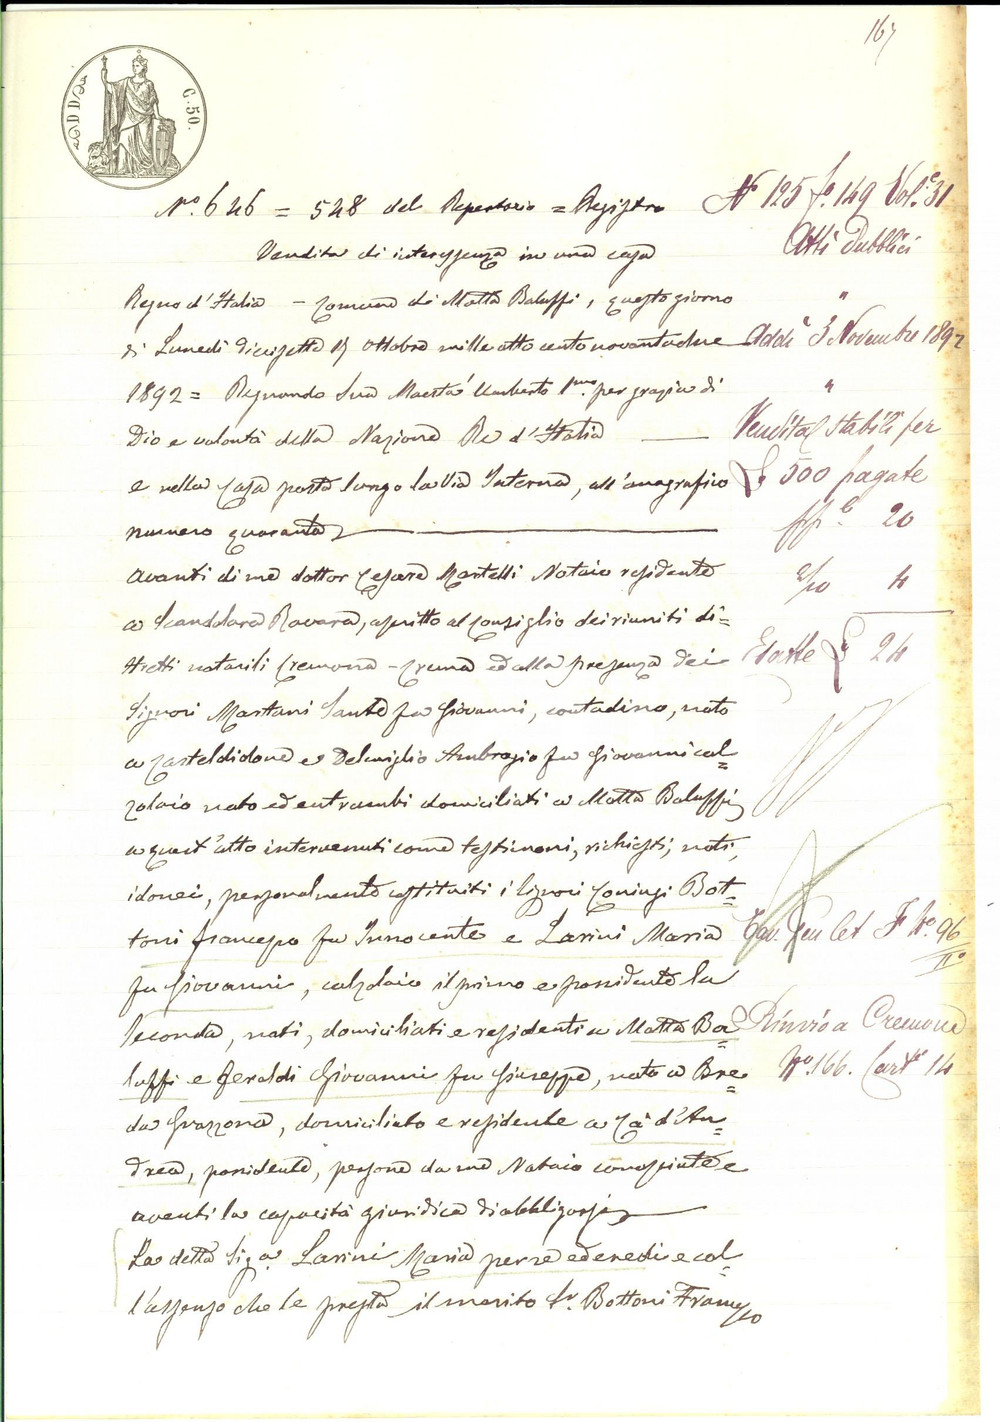 167
C. 50.
N.o 646 = 548 del Repertorio = Registro
Vendita di interessenza in una casa
Regno d'Italia - Comune di Motta Baluffi, questo giorno
di Lunedì diciasette 17 Ottobre mille otto cento novantadue
1892 = Regnando Sua Maestà Umberto 1mo per grazia di
Dio e volontà della Nazione Re d'Italia
e nella casa posta lungo la Via Interna, all'anagrafico
numero quaranta
Avanti di me dottor Cesare Martelli Notaio residente
a Scandolara Ravara, ascritto al Consiglio dei riuniti di=
stretti notarili Cremona - Crema ed alla presenza dei
Signori Martani Sante fu Giovanni, contadino, nato
a Casteldidone e Delmiglio Ambrogio fu Giovanni cal=
zolaio nato ed entrambi domiciliati a Motta Baluffi
a quest'atto intervenuti come testimoni, richiesti, noti,
idonei, personalmente costituiti i Signori Coniugi Bot=
toni Francesco fu Innocente e Larini Maria
fu Giovanni, calzolaio il primo e possidente la
seconda, nati, domiciliati e residenti a Motta Ba=
luffi e Geraldi Giovanni fu Giuseppe, nato a Bre=
da Guazzona, domiciliato e residente a Cà d'An=
drea, possidente, persone da me Notaio conosciute e
aventi la capacità giuridica di obbligarsi
La detta Sig.a Larini Maria per se ed eredi e col=
l'assenso che le presta il marito Sr. Bottoni Francesco
N 125 fo. 149 Vol.e 31
Atti Pubblici
"
Addì 3 Novembre 1892
"
Vendita Stabili per
£ 500 pagate
20
4
Esatte £ 24
let F No. 96
IIo
Rinvio a Cremona
No. 166. Cart. 14